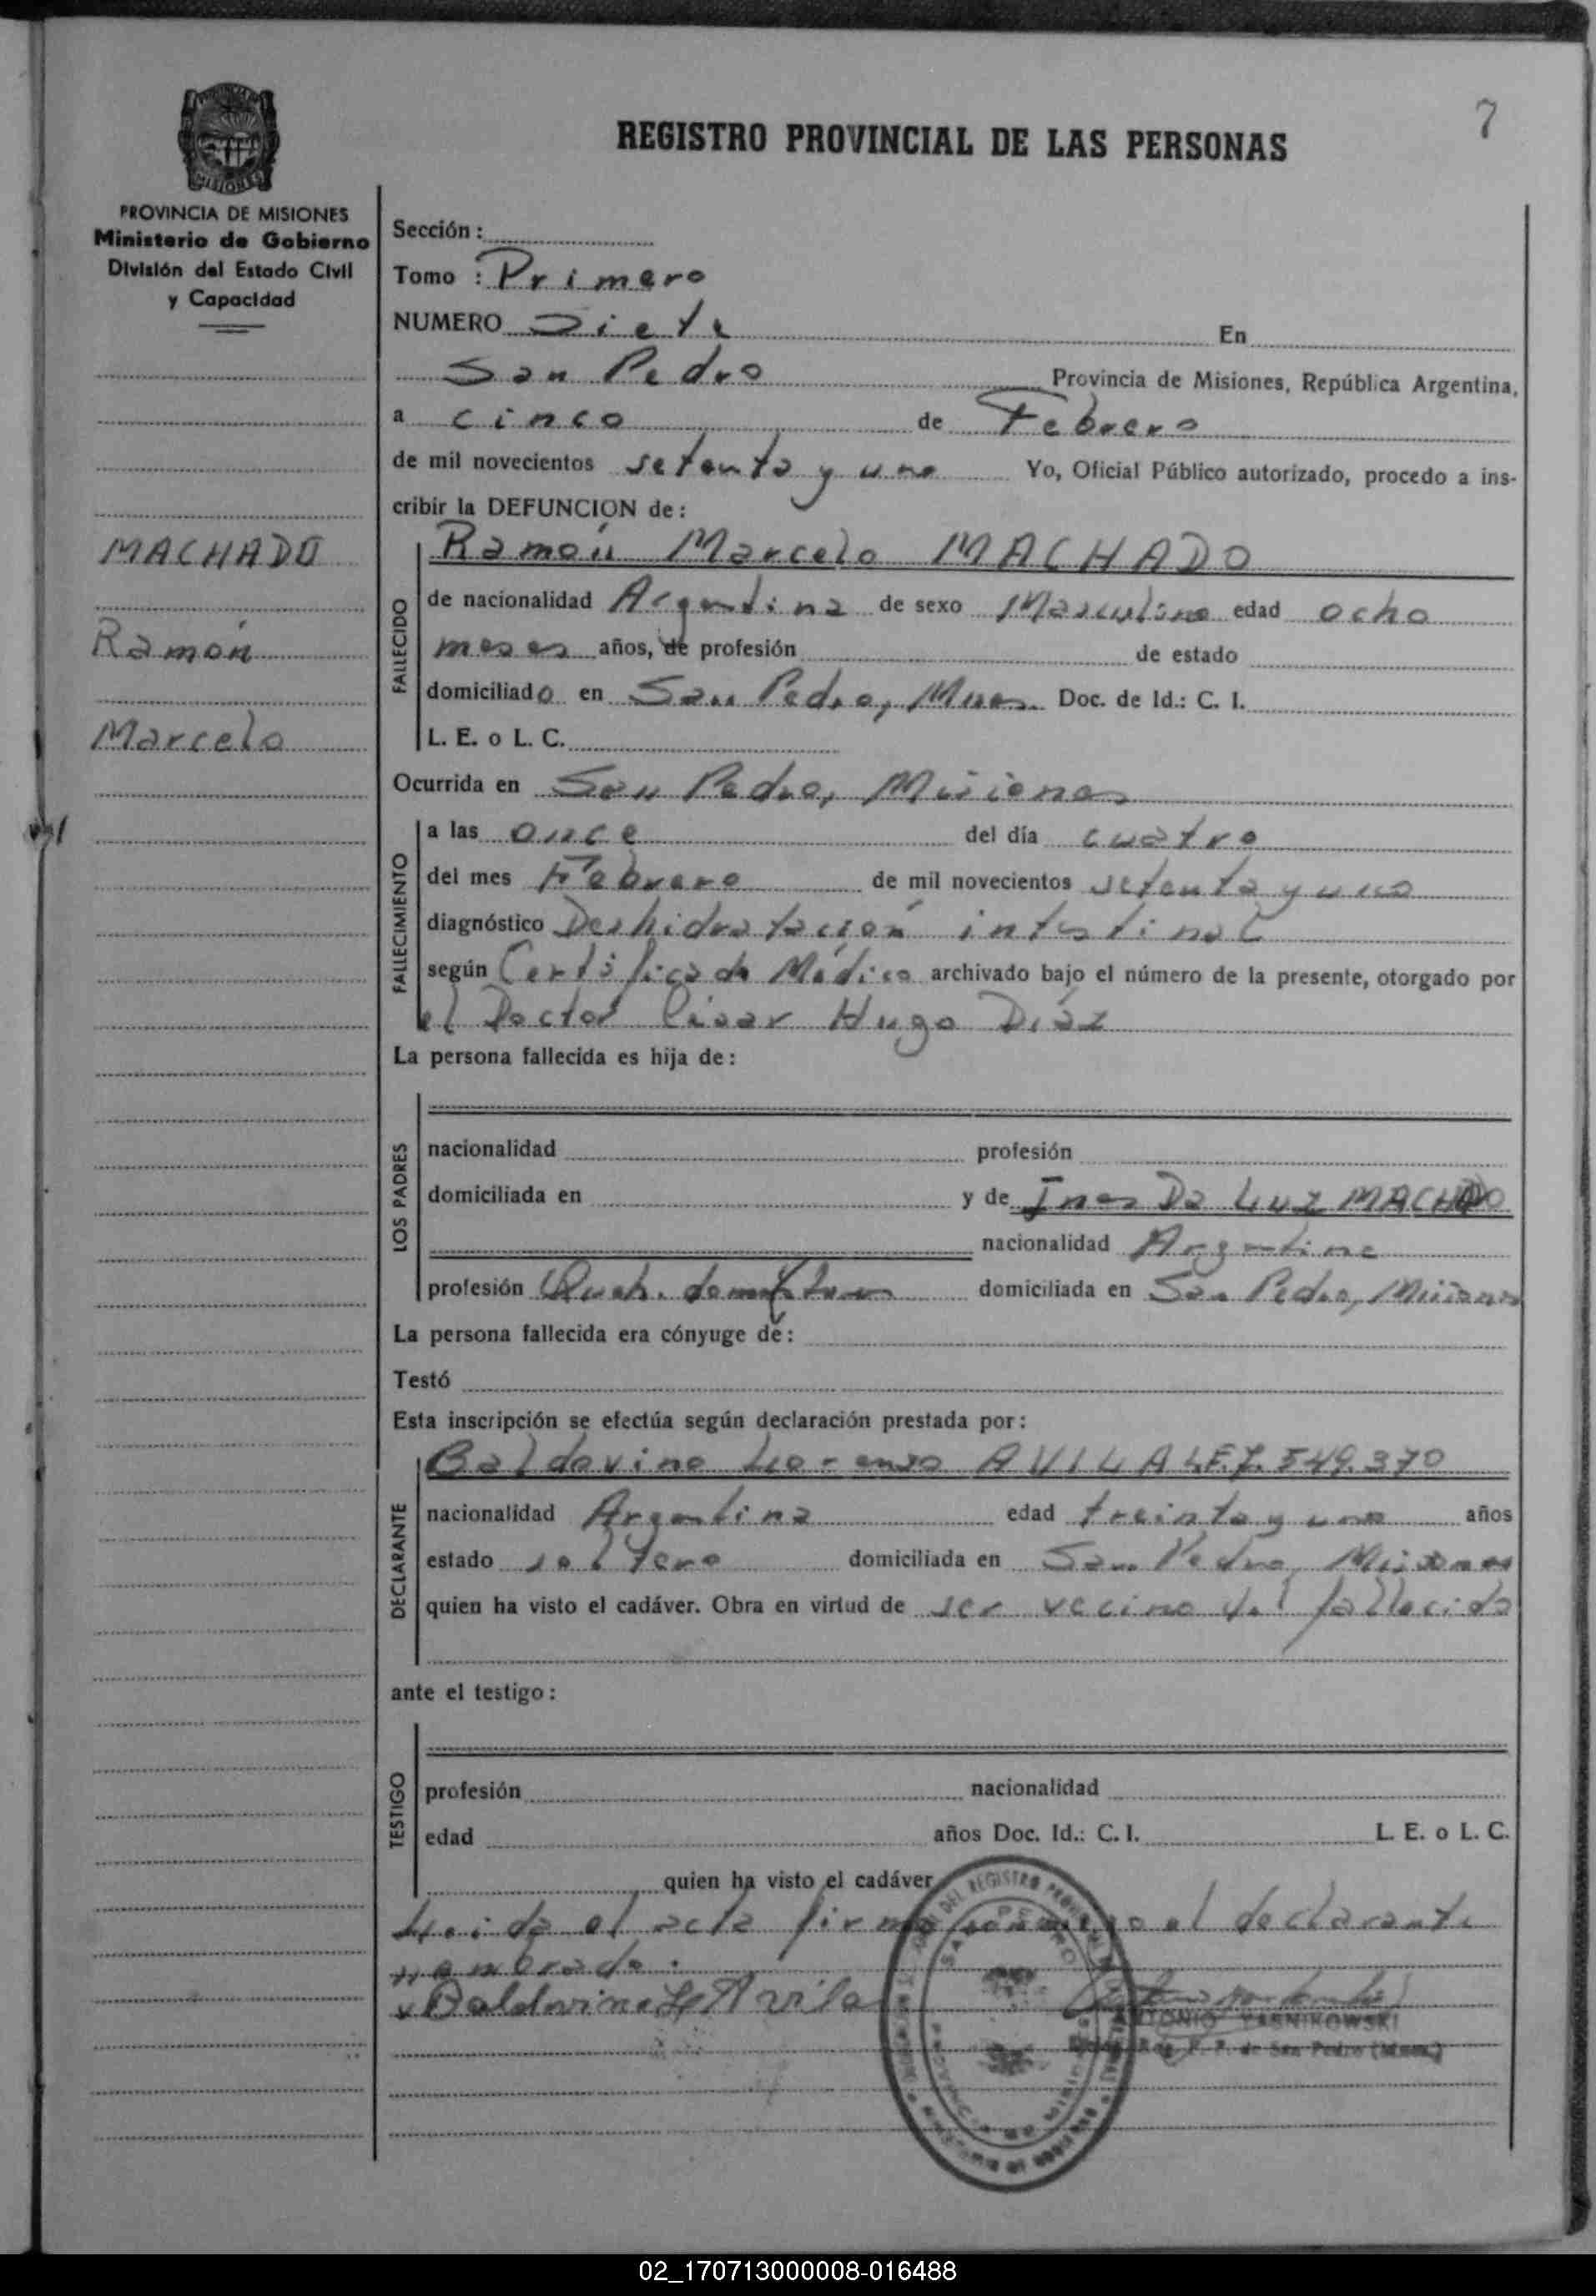 7
REGISTRO PROVINCIAL DE LAS PERSONAS
PROVINCIA DE MISIONES
Ministerio de Gobierno
División del Estado Civil
y Capacidad
MACHADO
Ramón
Marcelo
Sección:
Tomo: Primero
NUMERO Siete En
San Pedro Provincia de Misiones, República Argentina,
a cinco de Febrero
de mil novecientos setenta y uno Yo, Oficial Público autorizado, procedo a ins-
cribir la DEFUNCION de:
Ramón Marcelo MACHADO
FALLECIDO
de nacionalidad Argentina de sexo Masculino edad ocho
meses años, de profesión de estado
domiciliado en San Pedro, Mnes. Doc. de Id.: C. I.
L. E. o L. C.
Ocurrida en San Pedro, Misiones
FALLECIMIENTO
a las once del día cuatro
del mes Febrero de mil novecientos setenta y uno
diagnóstico Deshidratación intestinal
según Certificado Médico archivado bajo el número de la presente, otorgado por
el Doctor Cisar Hugo Díaz
La persona fallecida es hija de:
LOS PADRES
nacionalidad profesión
domiciliada en y de Ines Da Luz MACHADO
nacionalidad Argentina
profesión domiciliada en San Pedro, Misiones
La persona fallecida era cónyuge de:
Testó
Esta inscripción se efectúa según declaración prestada por:
Baldovino AVILA L.E. 7.549.370
DECLARANTE
nacionalidad Argentina edad treinta y uno años
estado soltero domiciliada en San Pedro, Misiones
quien ha visto el cadáver. Obra en virtud de ser vecino del fallecido
ante el testigo:
TESTIGO
profesión nacionalidad
edad años Doc. Id.: C. I. L. E. o L. C.
quien ha visto el cadáver
Leida el acta firma conmigo el declarante
nombrado.
x Baldovino L. Avila
DEL REGISTRO
SAN PEDRO
ANTONIO YASNIKOWSKI
R. P. P. de San Pedro (Mnes.)
02_170713000008-016488